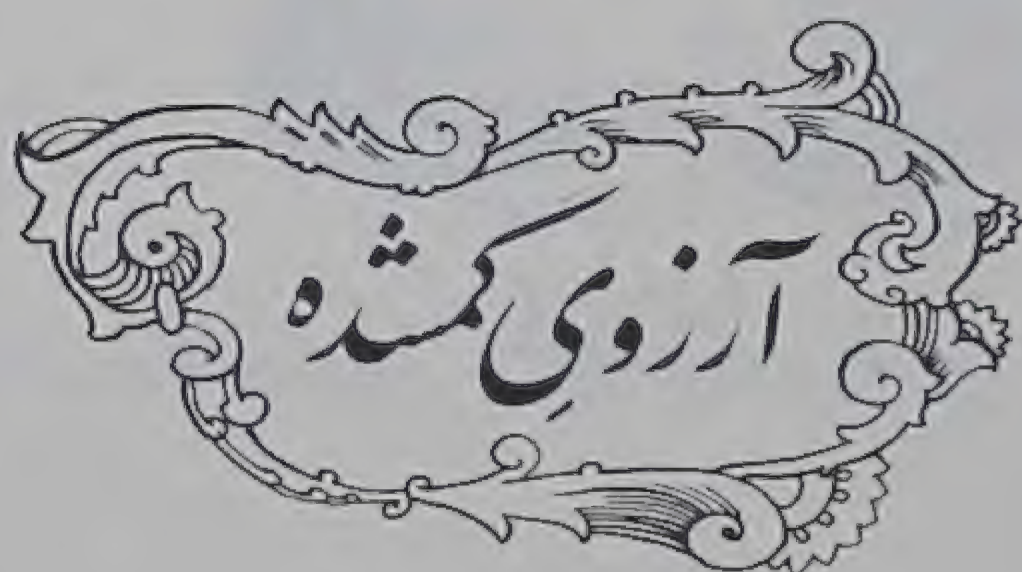 آرزویِ گمشده